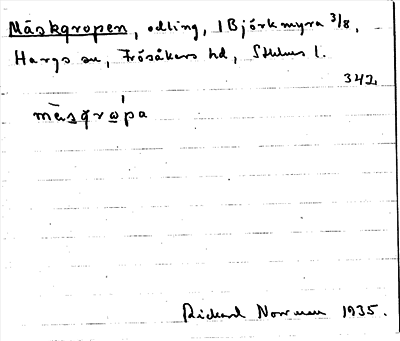 Mäskgropen, odling, 1 Björkmyra 3/8,
Hargs sn, Frösåkers hd, Sthlms l.
342
mäsgrapa
Rickard Norrman 1935.